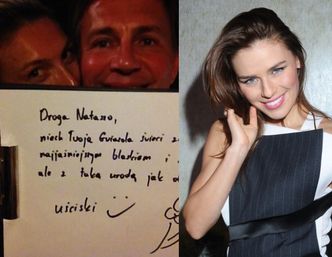 Droga Nataszo,
niech Twoja Gwiazda świeci z
najjaśniejszym blaskiem i
ale z taką urodą jak
uściski